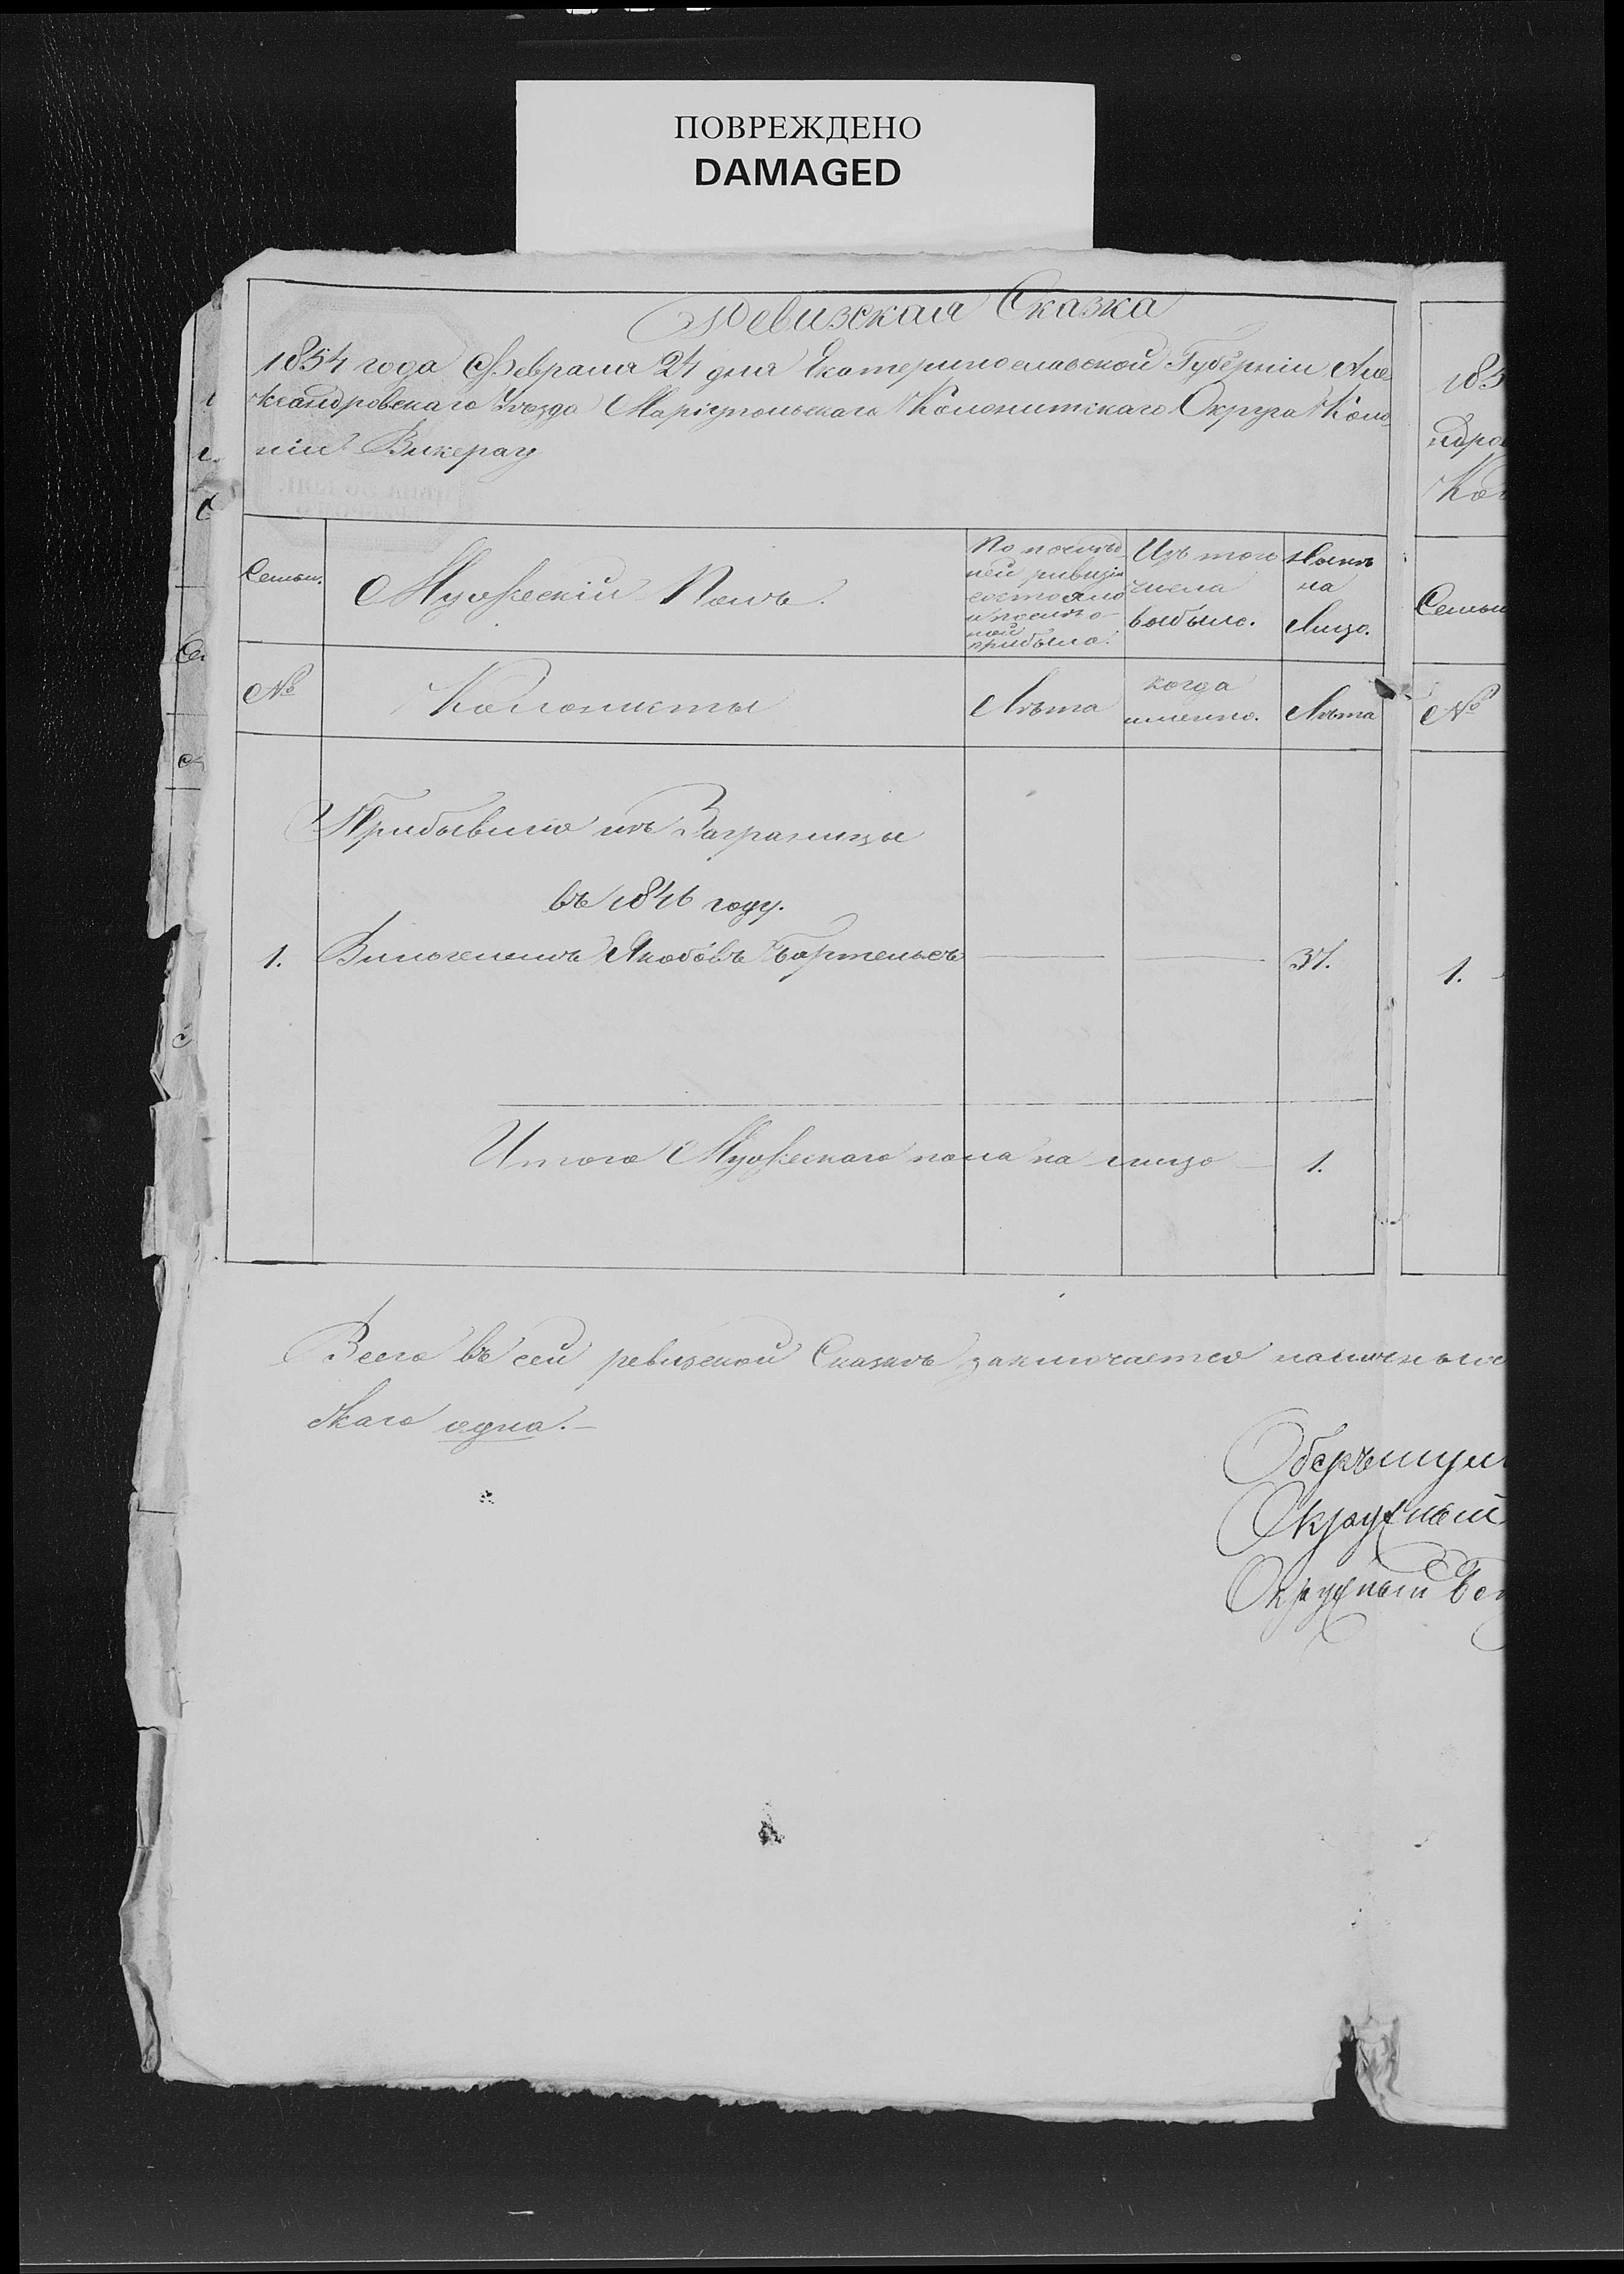 ПОВРЕЖДЕНО
DAMAGED
Ревизская Сказка
1854 года Февраля 24 дня Екатеринославской Губерніи Але
ксандровскаго Уѣзда Маріупольскаго Колонитскаго Округа Коло
ніи Викерау
Семьи.
Мужескій Полъ.
По послѣд
ней ревизіи
состояло
и послѣ о
ной
прибыло.
Изъ того
числа
выбыло.
Нынѣ
на
Лицо.
№
Колонисты
Лѣта
когда
именно.
Лѣта
Прибывшіе изъ Заграницы
въ 1846 году.
1. Вильгельмъ Якобовъ Бартельсъ 37.
Итого Мужескаго пола на лицо 1.
Всего въ сей ревизской Сказкѣ заключается
скаго одна.
Оберъшул
Окружный
Окружный
185
Ко
Семьи
№
1.